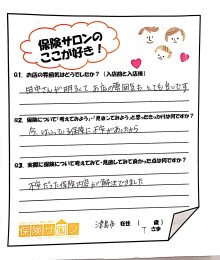 保険サロンの
ここが好き!
Q1. お店の雰囲気はどうでしたか?(入店前と入店後)
田中さんが明るくてお店の雰囲気もとても良いです
Q2. 保険について「考えてみよう」・「見直してみよう」と思ったきっかけは何ですか?
今、はいっている保険に不安があったから
Q3. 実際に保険について考えてみて・見直してみて良かった点は何ですか?
不安だった保険内容が解決できました
保険サロン
津島市 在住 ( 歳)
T さま